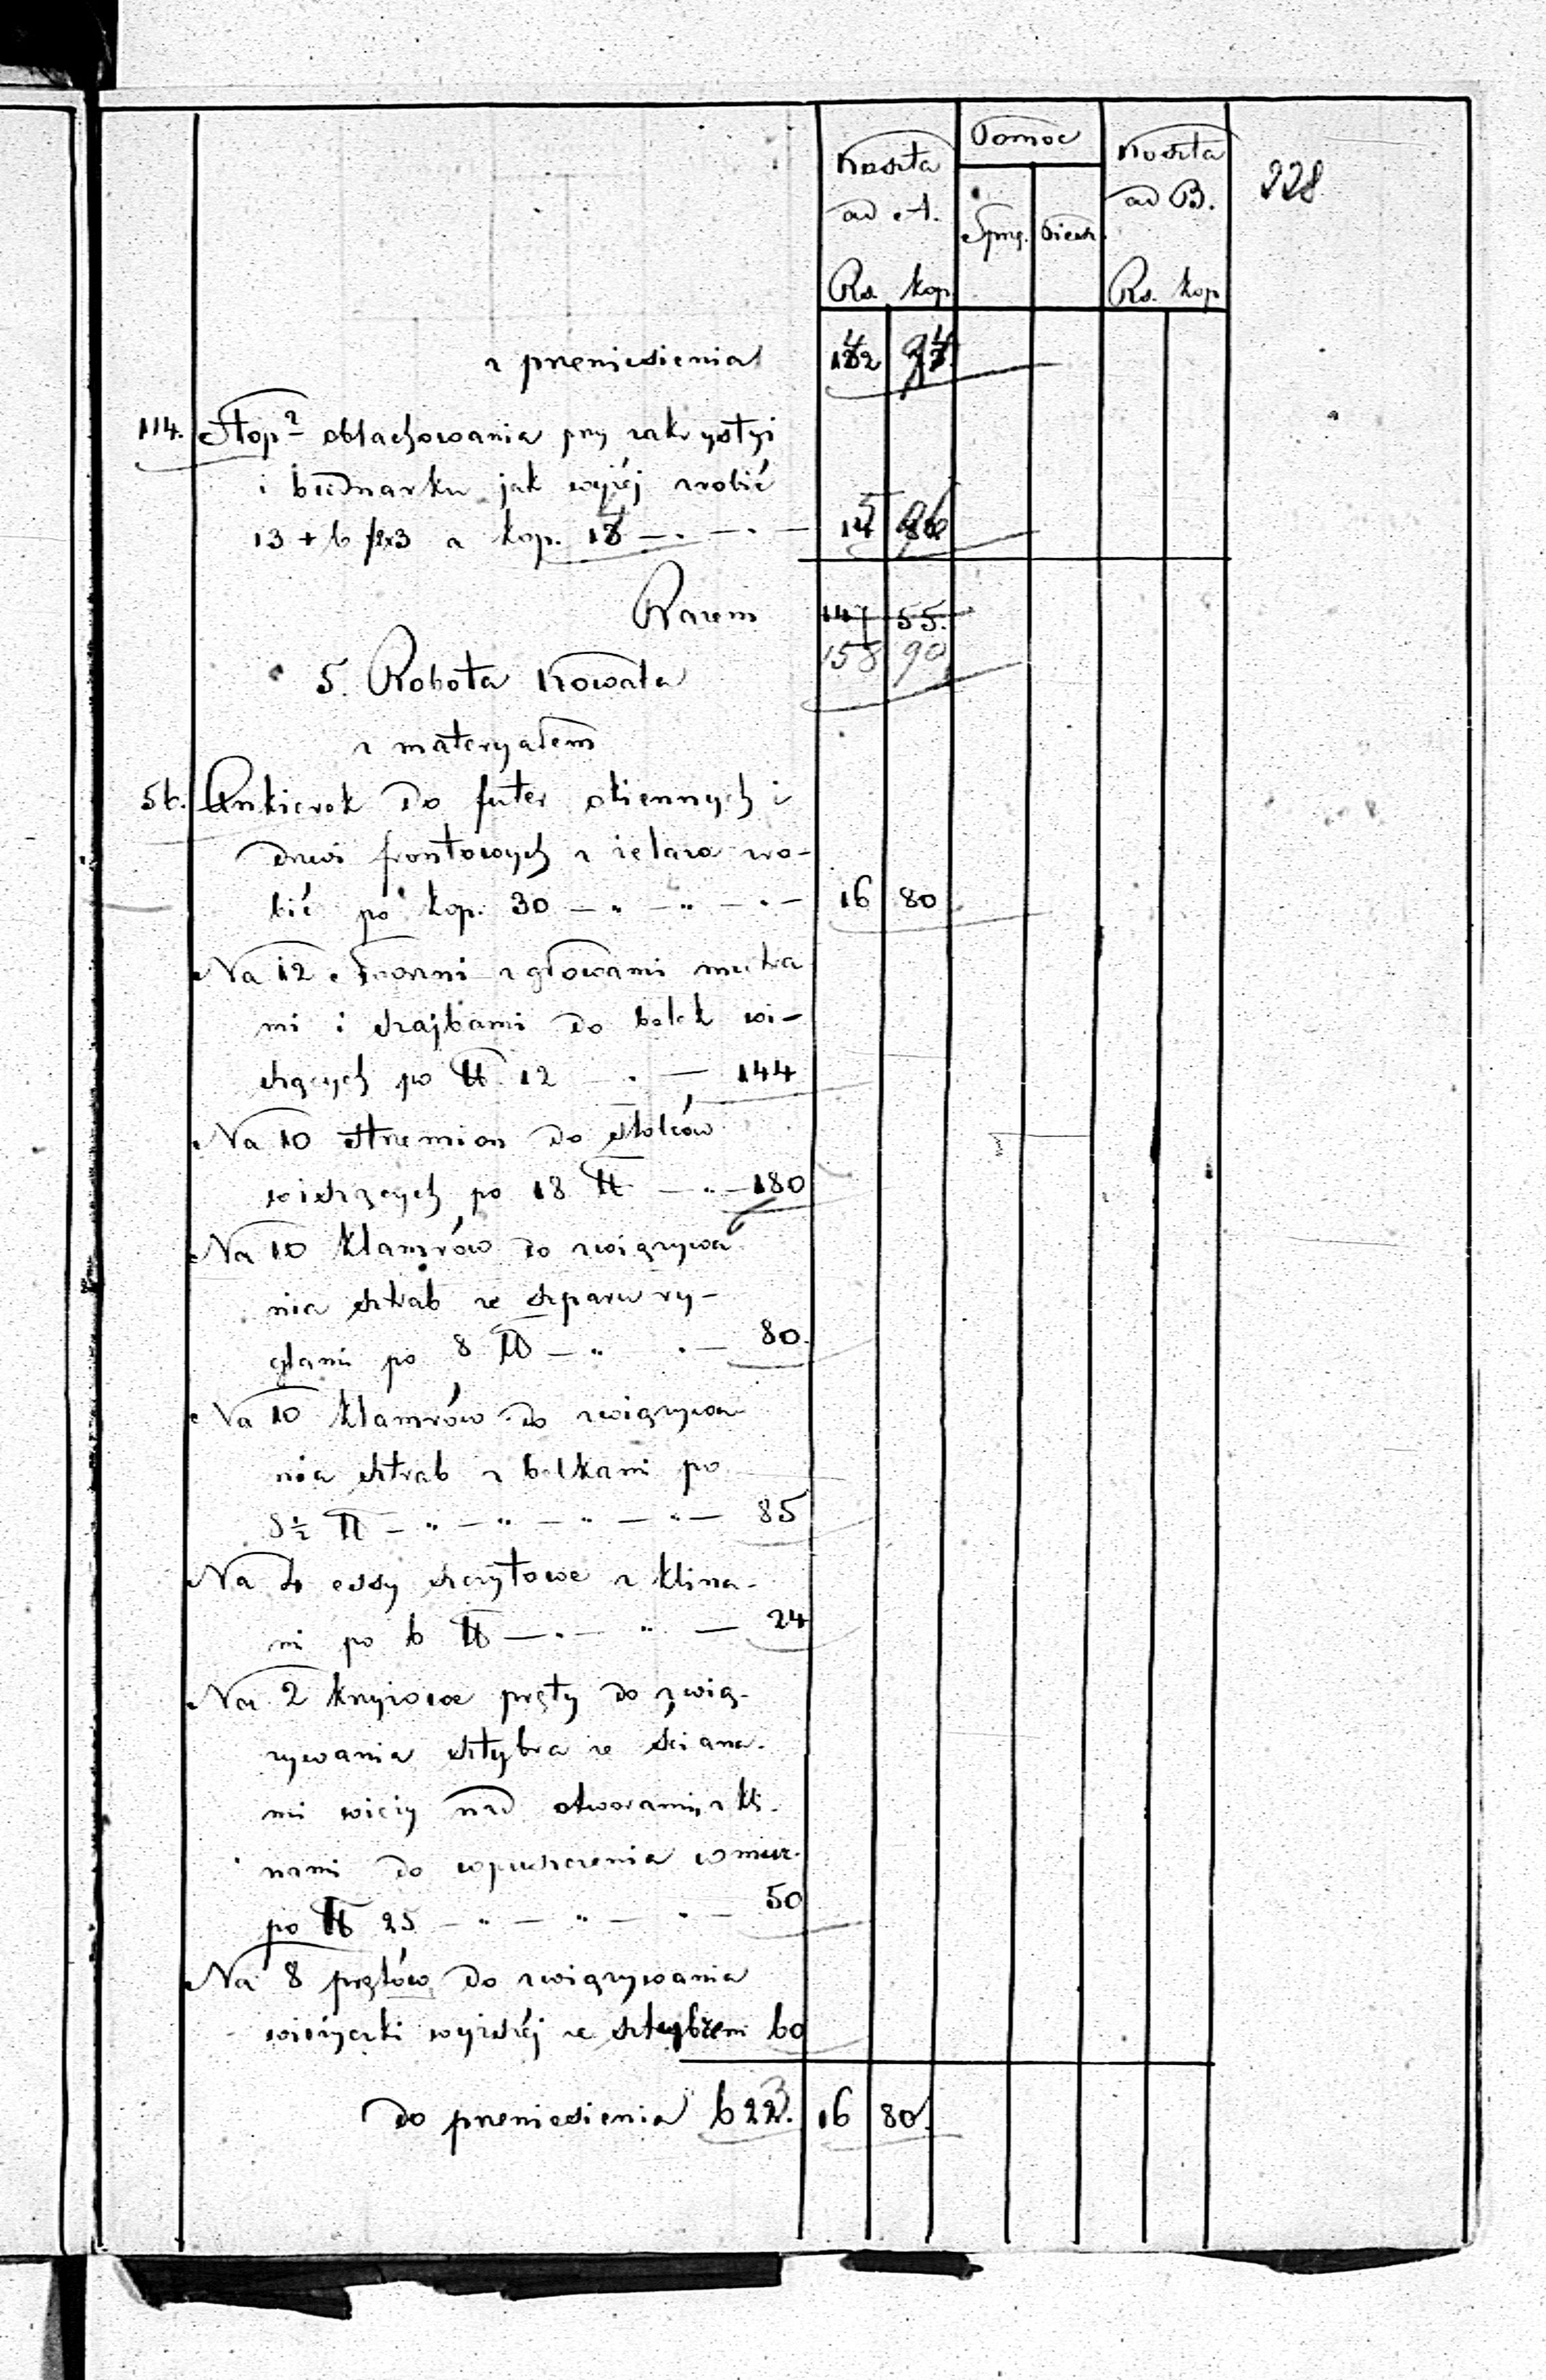 Koszta Pomoc Koszta
ad A. Sprzę. Piesz. ad B. 228
Rs. kop. Rs. kop
z przeniesienia 142 94
114. Stop² oblachowania przy zakrystyi
i bednarku jak wyżéj zrobić
13 + 6 / 2x3 a kop. 14 — 15 96
Razem 147 55.
158 90
5. Robota Kowala
z materyałem
56. Ankierek do futer okiennych i
drzwi frontowych z żelaza zro-
bić po kop. 30 — „ — „ — „ — 16 80
Na 12 Sworzni z głowami mutra
mi i szajbami do belek wi-
szących po ℔ 12 — „ — 144
Na 10 strzemion do stolców
wiszących po 18 ℔ — „ — 180
Na 10 klamrów do związywa
nia sztrab ze szparu ry-
glami po 8 ℔ — „ „ — 80.
Na 10 klamrów do związywa
nia sztrab z belkami po
8½ ℔ — „ — „ — „ — „ — 85
Na 4 essy szczytowe z klina-
mi po 6 ℔ — „ — „ — 24
Na 2 krzyżowe pręty do związ-
zywania sztybra ze ściana-
mi wieży nad otworami z kli-
nami do wpuszczenia w mur
po ℔ 25 — „ — „ — „ — 50
Na 8 prętów do związywania
wieżyczki wyższéj ze sztybrem 60
do przeniesienia 623. 16 80.